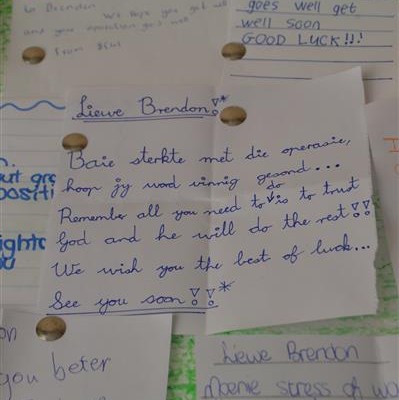 to Brendon
We hope you get well
and your operation goes well
from
goes well get
well soon
GOOD LUCK!!!
Liewe Brendon!*
Baie sterkte met die operasie,
hoop jy word vinnig gesond...
Remember all you need to do is to trust
God and he will do the rest!!
We wish you the best of luck...
See you soon!!*
but gr
positi
you beter
Liewe Brendon
Moenie stress of wo